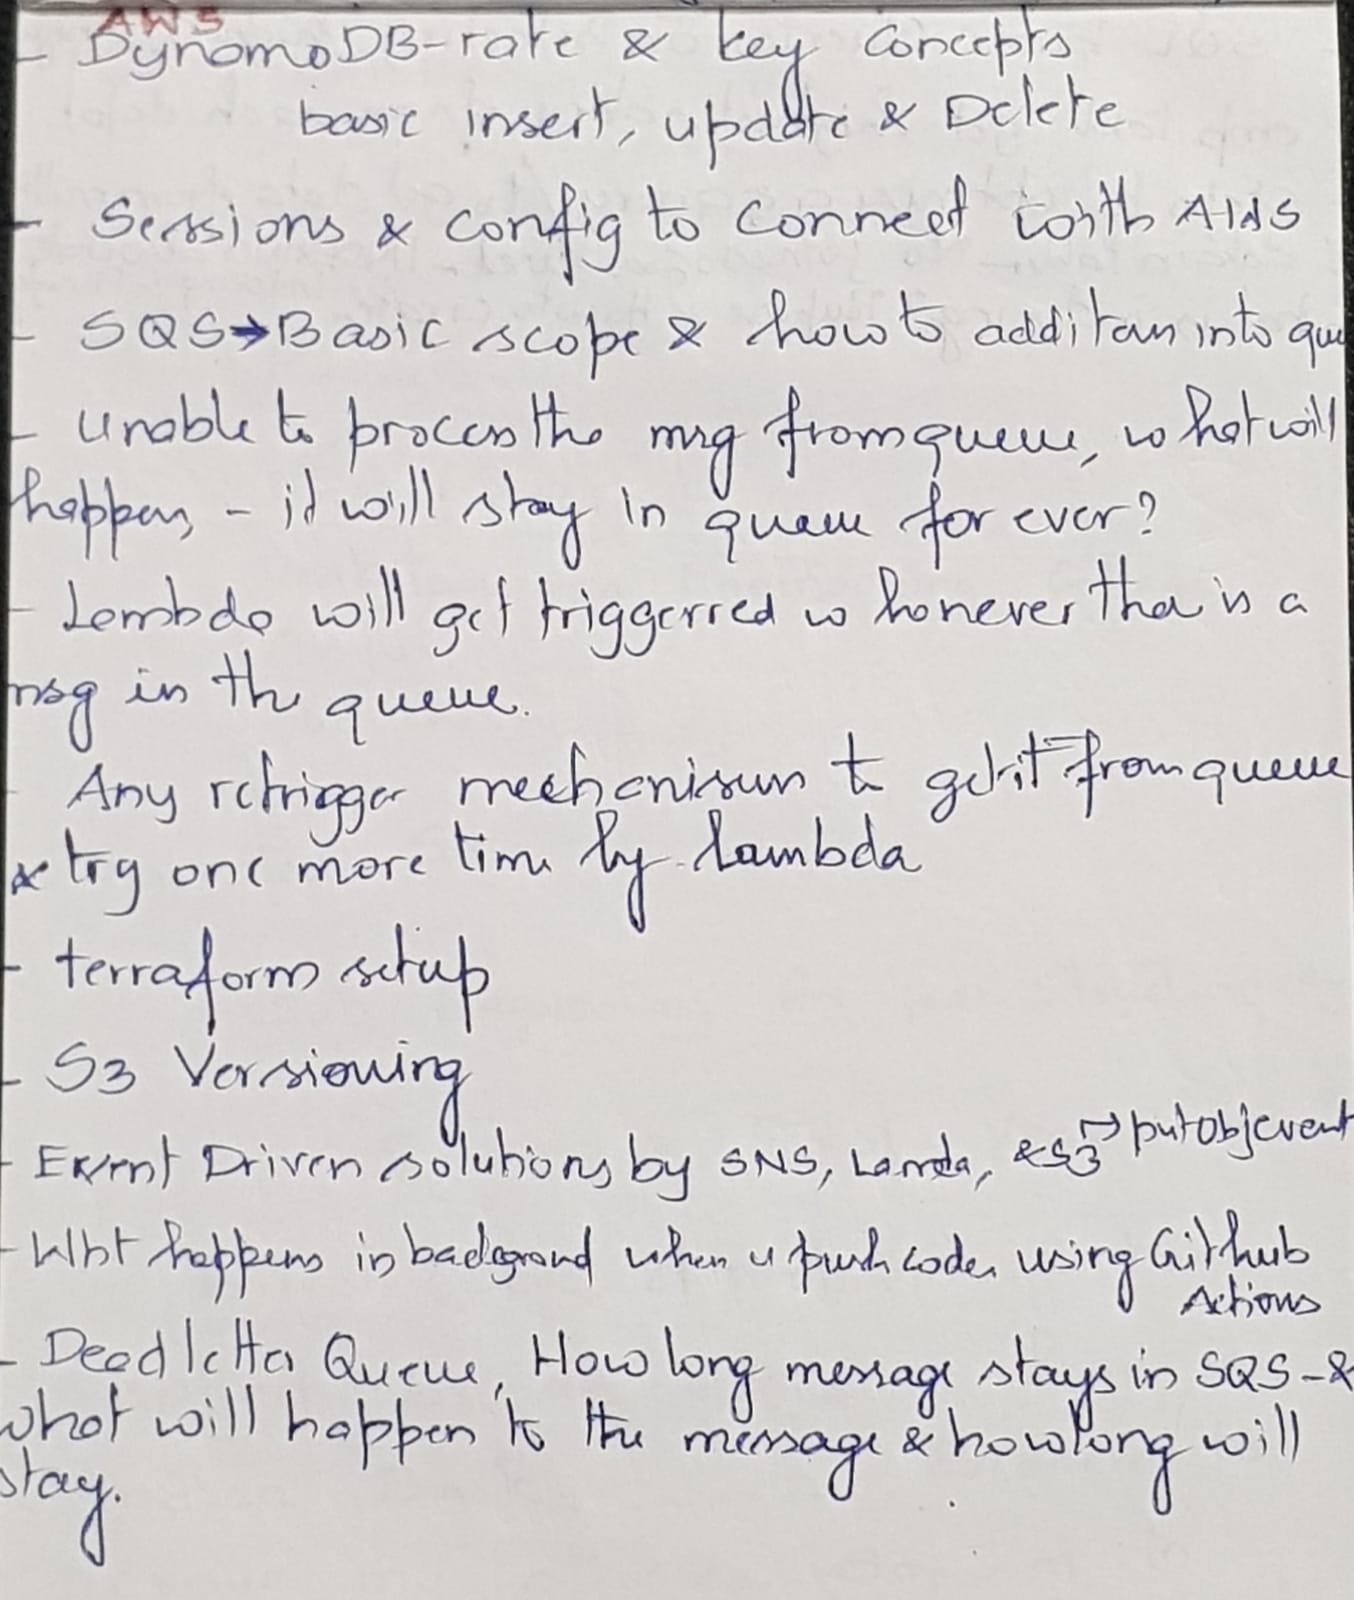 AWS
- DynomoDB-rate & key concepts
basic insert, update & Delete
- Sessions & config to connect with AWS
- SQS→Basic scope & how to add item into que
- Unable to process the msg from queue, what will
happen, - it will stay in queue for ever?
- Lambda will get triggerred whenever ther is a
msg in the queue.
- Any retrigger mechanism to get it from queue
& try one more time by lambda
- terraform setup
- S3 Versioning
- Event Driven solutions by SNS, Lamda, & S3 → putObjevent
- What happens in background when u push code using Github
Actions
- Dead letter Queue, How long message stays in SQS - &
what will happen to the message & how long will
stay.